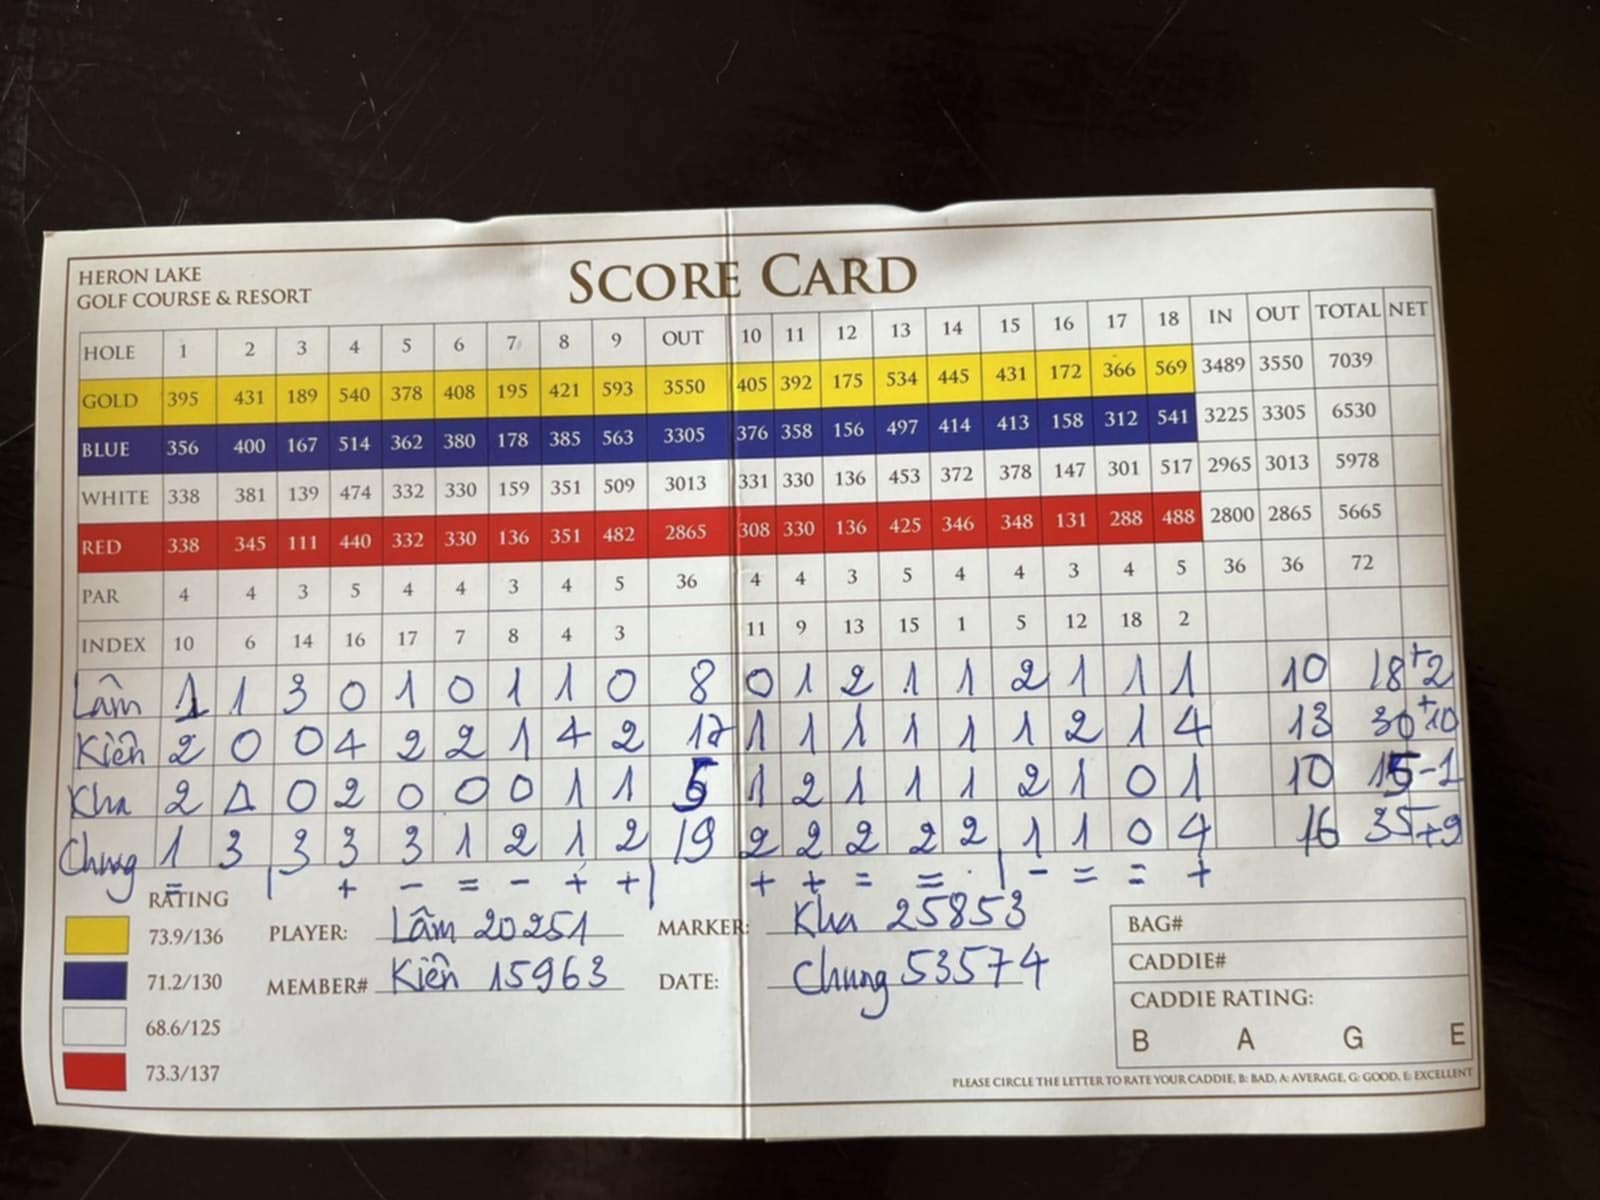 HERON LAKE
GOLF COURSE & RESORT
SCORE CARD
HOLE 1 2 3 4 5 6 7 8 9 OUT 10 11 12 13 14 15 16 17 18 IN OUT TOTAL NET
GOLD 395 431 189 540 378 408 195 421 593 3550 405 392 175 534 445 431 172 366 569 3489 3550 7039
BLUE 356 400 167 514 362 380 178 385 563 3305 376 358 156 497 414 413 158 312 541 3225 3305 6530
WHITE 338 381 139 474 332 330 159 351 509 3013 331 330 136 453 372 378 147 301 517 2965 3013 5978
RED 338 345 111 440 332 330 136 351 482 2865 308 330 136 425 346 348 131 288 488 2800 2865 5665
PAR 4 4 3 5 4 4 3 4 5 36 4 4 3 5 4 4 3 4 5 36 36 72
INDEX 10 6 14 16 17 7 8 4 3 11 9 13 15 1 5 12 18 2
Lâm 1 1 3 0 1 0 1 1 0 8 0 1 2 1 1 2 1 1 1 10 18+2
Kiên 2 0 0 4 2 2 1 4 2 17 1 1 1 1 1 1 2 1 4 13 30+10
Kha 2 1 0 2 0 0 0 1 1 5 1 2 1 1 1 2 1 0 1 10 15-1
Chung 1 3 3 3 3 1 2 1 2 19 2 2 2 2 2 1 1 0 4 16 35+9
= | + - = - + + | + + = = | - = = +
RATING
73.9/136 PLAYER: Lâm 20251 MARKER: Kha 25853 BAG#
71.2/130 MEMBER# Kiên 15963 DATE: Chung 53574 CADDIE#
68.6/125 CADDIE RATING:
73.3/137 B A G E
PLEASE CIRCLE THE LETTER TO RATE YOUR CADDIE, B: BAD, A: AVERAGE, G: GOOD, E: EXCELLENT